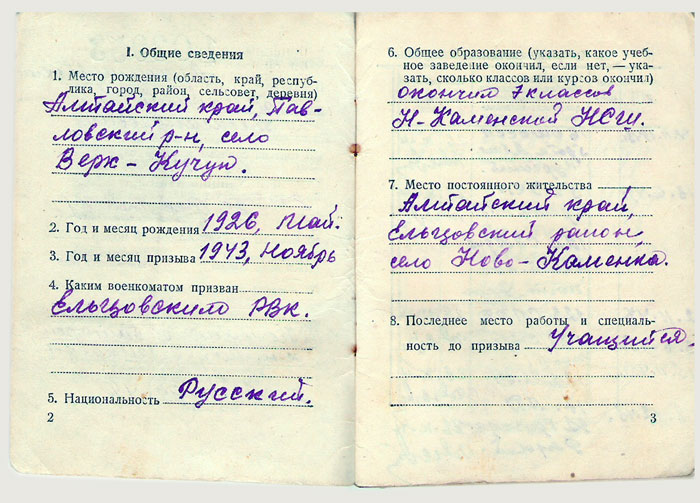 I. Общие сведения
1. Место рождения (область, край, респуб-
лика, город, район, сельсовет, деревня)
Алтайский край, Пав-
ловский р-н, село
Верх-Кучук.
2. Год и месяц рождения 1926, Май.
3. Год и месяц призыва 1943, Ноябрь
4. Каким военкоматом призван
Ельцовским РВК.
5. Национальность Русский.
2
6. Общее образование (указать, какое учеб-
ное заведение окончил, если нет, — ука-
зать, сколько классов или курсов окончил)
окончил 7 классов
Н-Каменской НСШ.
7. Место постоянного жительства
Алтайский край,
Ельцовский район,
село Ново-Каменка.
8. Последнее место работы и специаль-
ность до призыва Учащийся.
3